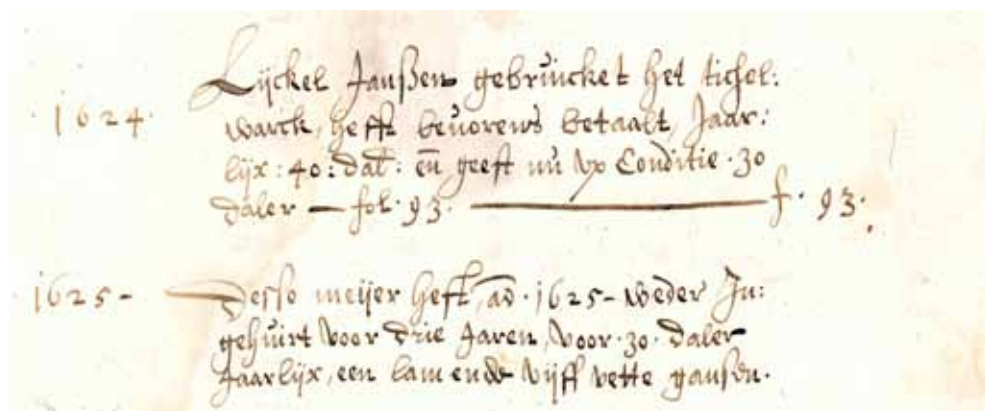 Lijckel Janßen gebruicket het tichel:
1624. warck, hefft beuorens betaalt, Jaar:
lijx: 40: dal: en̄ geeft nu vp Conditie. 30
daler — fol. 93. — f. 93.
1625 - Desse meijer hefft ao. 1625 - weder In:
gehuirt voor drie Jaren, voor. 30. daler
Jaarlijx, een lam ende vijff vette gansen.